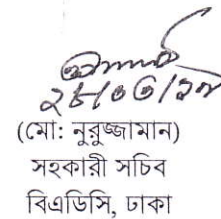 ২৮/০৩/১৭
(মো: নুরুজ্জামান)
সহকারী সচিব
বিএডিসি, ঢাকা